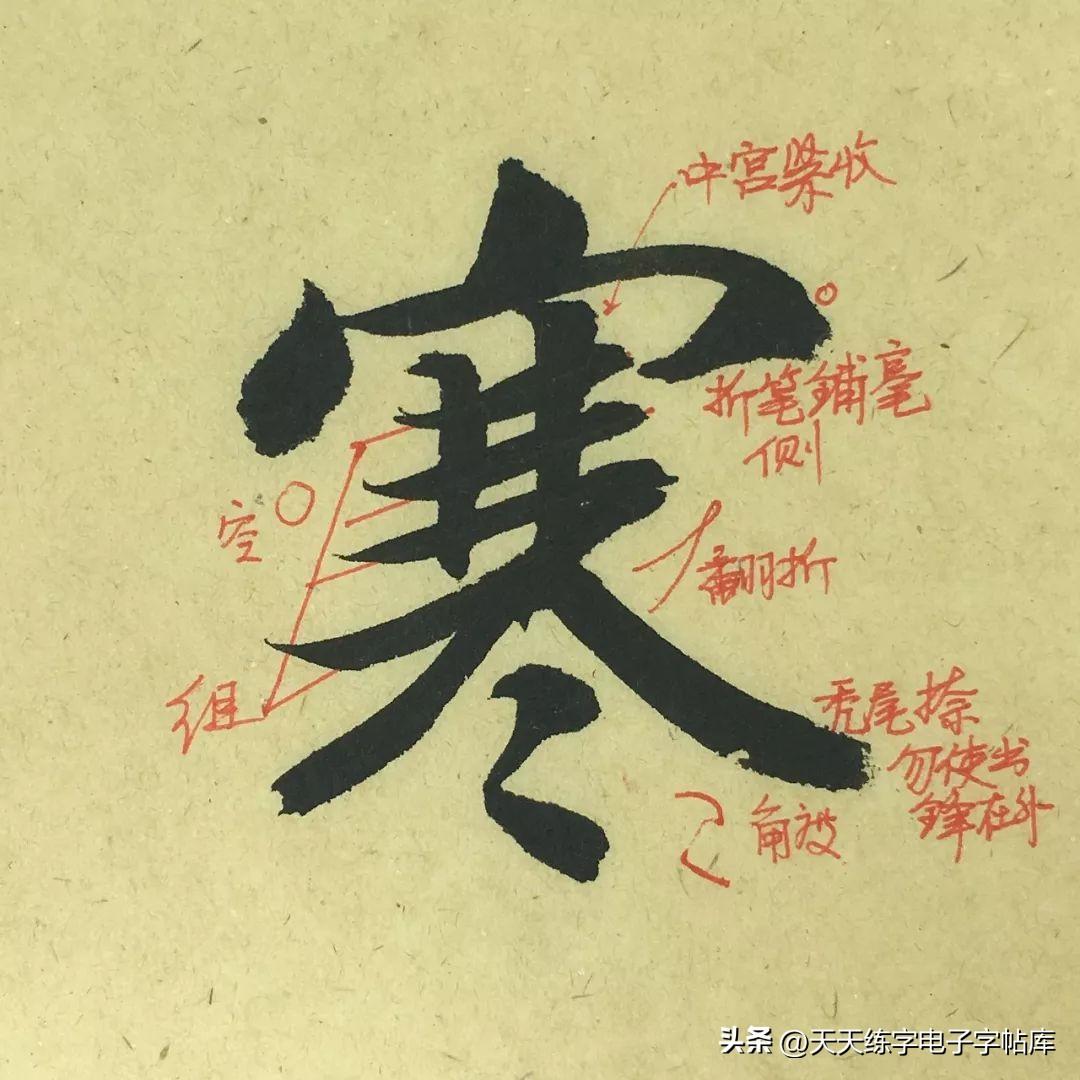 中宫紧收
寒
折笔铺毫
侧
空
翻折
组
秃尾捺
勿使出
锋在外
角度
头条 @天天练字电子字帖库